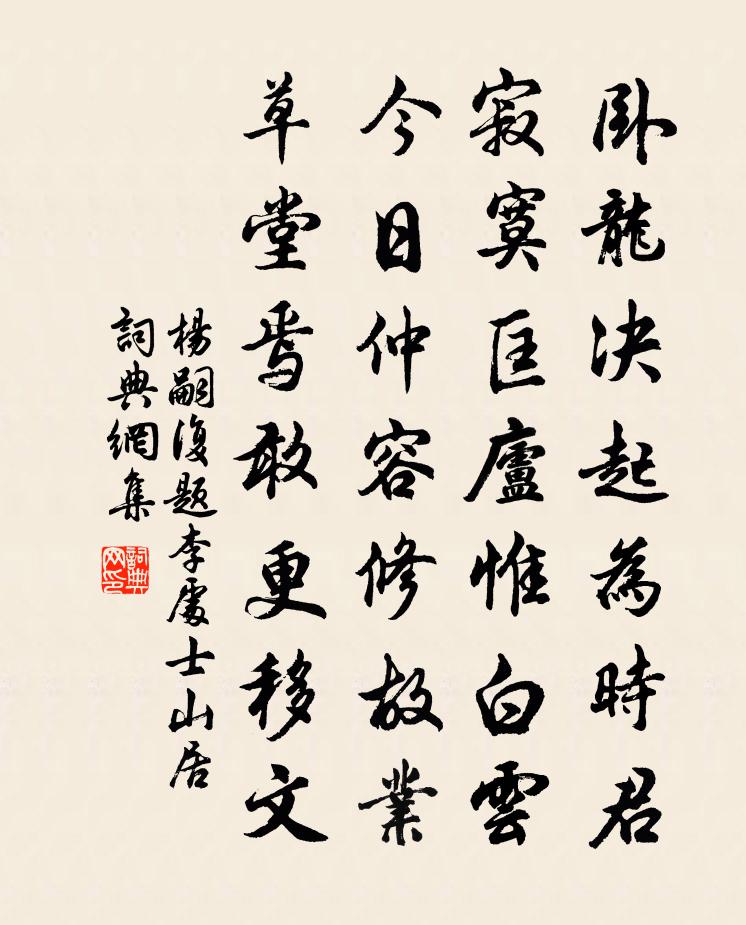 卧龍决起為時君
寂寞匡廬惟白雲
今日仲容修故業
草堂焉敢更移文
楊嗣復題李處士山居
詞典網集
詞典网印